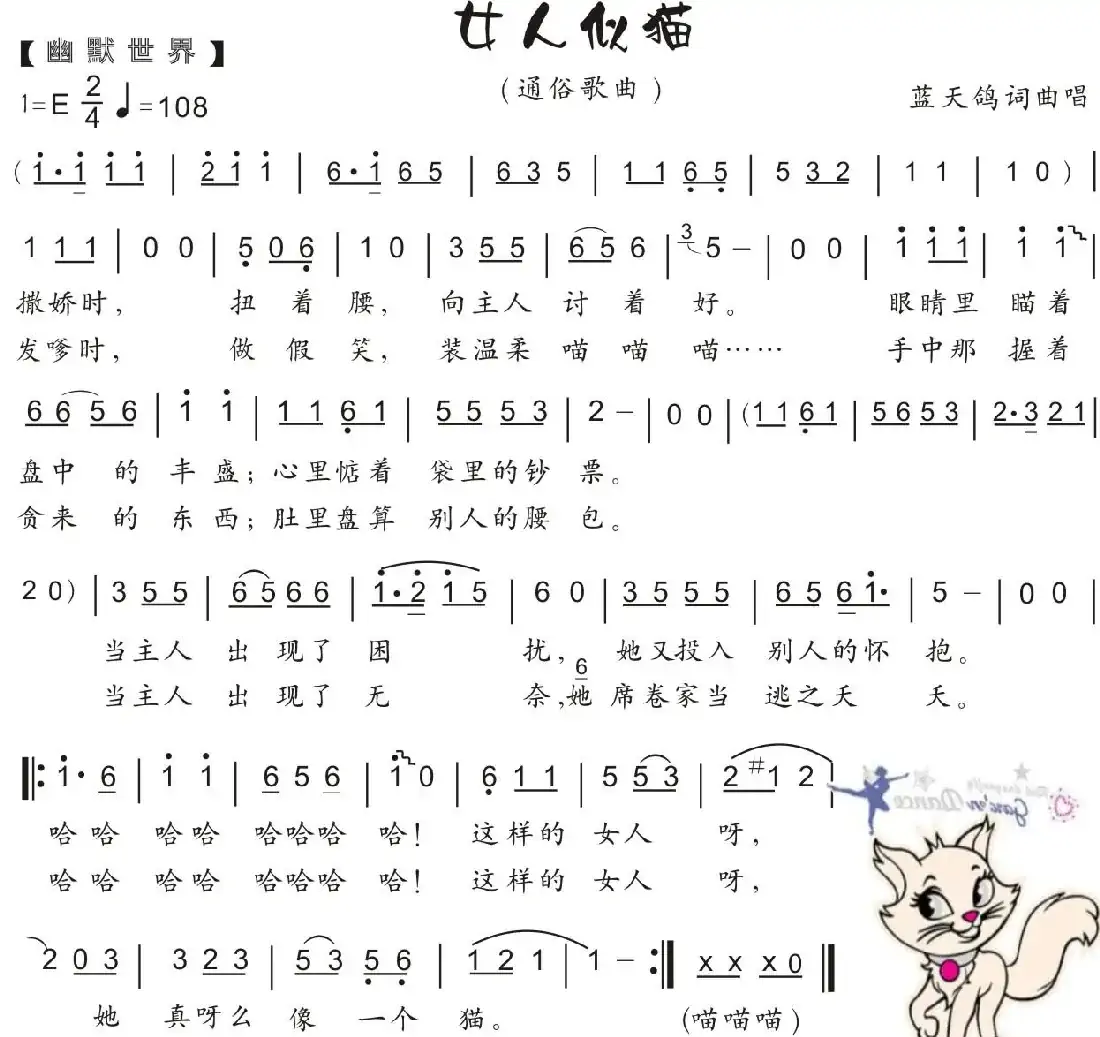 女人似猫
【幽默世界】
（通俗歌曲）
1=E 2/4 ♩=108
蓝天鸽词曲唱
( i·i i i | 2 i i | 6·i 6 5 | 6 3 5 | 1 1 6 5 | 5 3 2 | 1 1 | 1 0 ) |
1 1 1 | 0 0 | 5 0 6 | 1 0 | 3 5 5 | 6 5 6 | 3 5 – | 0 0 | i i i | i i |
撒娇时， 扭着腰， 向主人讨着好。 眼睛里瞄着
发嗲时， 做假笑， 装温柔喵喵喵…… 手中那握着
6 6 5 6 | i i | 1 1 6 1 | 5 5 5 3 | 2 – | 0 0 | ( 1 1 6 1 | 5 6 5 3 | 2·3 2 1 |
盘中的丰盛；心里惦着袋里的钞票。
贪来的东西；肚里盘算别人的腰包。
2 0 ) | 3 5 5 | 6 5 6 6 | i·2 i 5 | 6 0 | 3 5 5 5 | 6 5 6 i· | 5 – | 0 0 |
当主人出现了困扰， 她又投入别人的怀抱。
6
当主人出现了无奈，她席卷家当逃之夭夭。
‖: i· 6 | i i | 6 5 6 | i 0 | 6 1 1 | 5 5 3 | 2 #1 2 |
Garden Dance
哈哈 哈哈 哈哈哈 哈！ 这样的女人呀，
哈哈 哈哈 哈哈哈 哈！ 这样的女人呀，
2 0 3 | 3 2 3 | 5 3 5 6 | 1 2 1 | 1 – :‖ x x x 0 ‖
她真呀么像一个猫。 （喵喵喵）